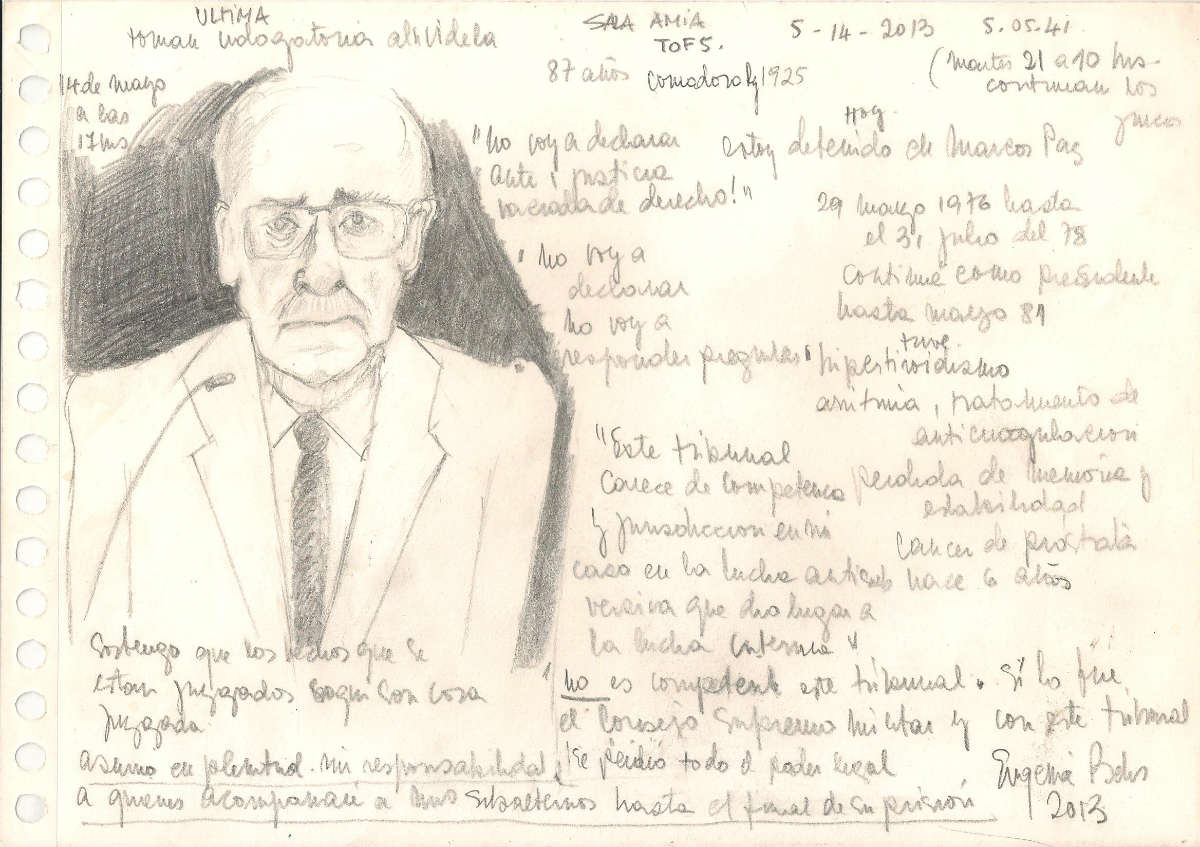 ULTIMA
toman indagatoria al Videla
SALA AMIA
TOF5.
5-14-2013 5.05.41
14 de marzo
a las
17 hs
87 años comodoro Py 1925
(martes 21 a 10 hs.
continuan los
juicios
"no voy a declarar
ante justicia
vaciada de derecho!"
Hoy
estoy detenido de Marcos Paz
29 marzo 1976 hasta
el 31 julio del 78
continué como presidente
hasta marzo 81
"no voy a
declarar
no voy a
responder preguntas"
tuve
hipertiroidismo
arritmia, tratamiento de
anticoagulacion
perdida de memoria y
estabilidad
Cancer de próstata
hace 6 años
"Este tribunal
carece de competencia
y jurisdiccion en mi
caso en la lucha antisub
versiva que dio lugar a
la lucha interna"
Sostengo que los hechos que se
estan juzgados son cosa
juzgada
"no es competente este tribunal. Si lo fue
el Consejo Supremo Militar y con este tribunal
se perdió todo el poder legal
asumo en plenitud mi responsabilidad,
a quienes acompañaré a mis subalternos hasta el final de su prisión
Eugenia Bekeris
2013